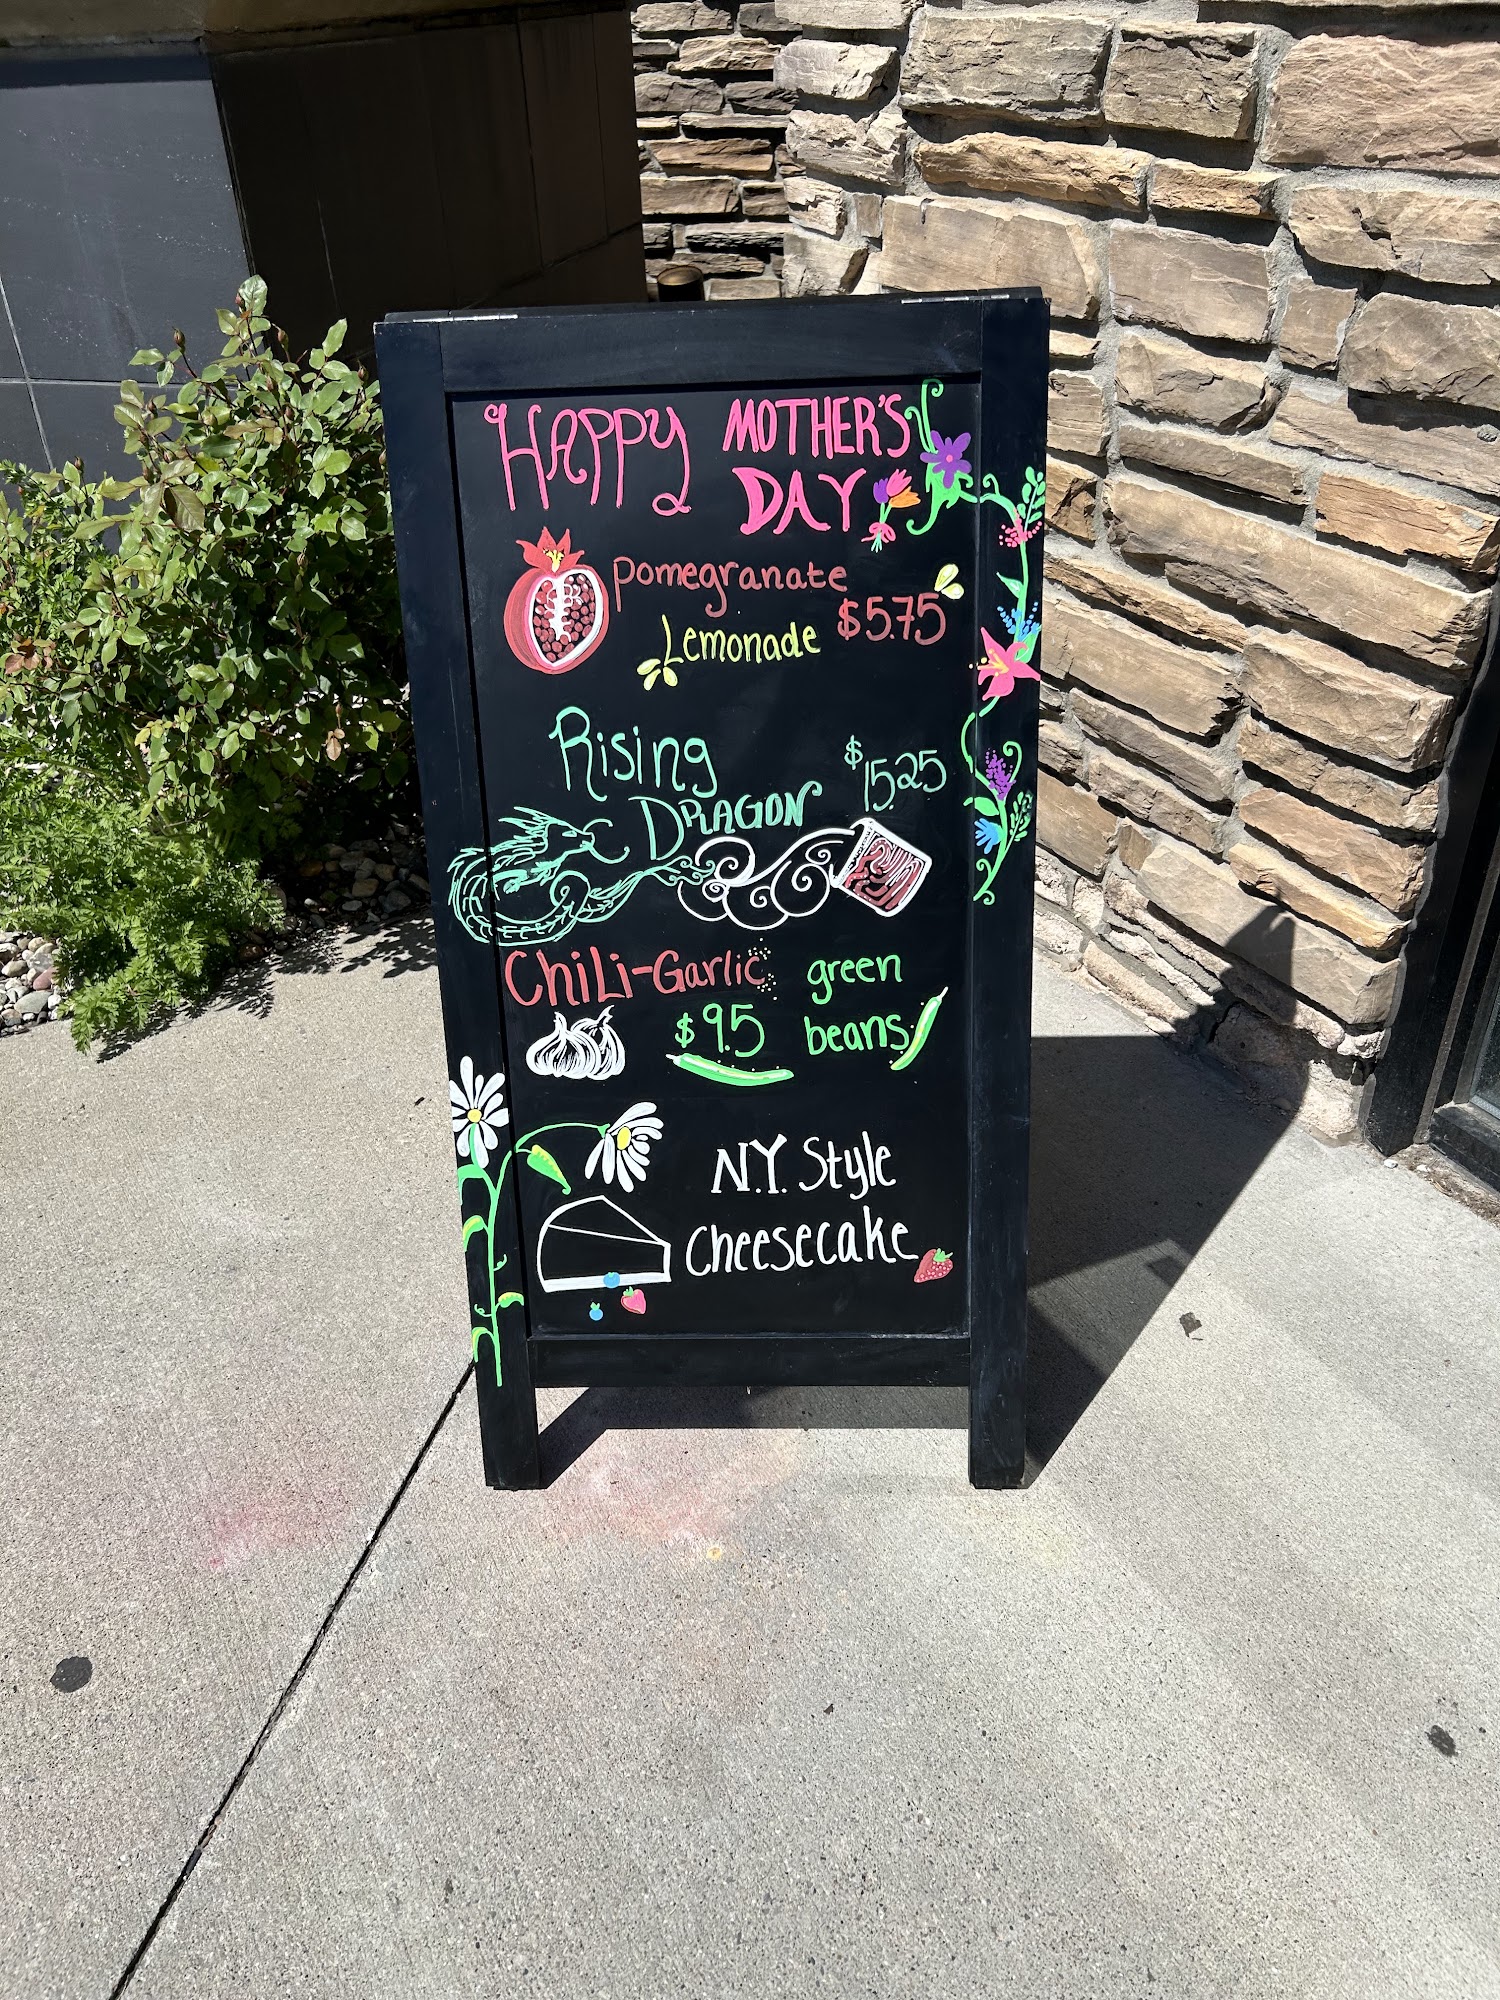 HAPPY MOTHER'S
DAY
Pomegranate
Lemonade $5.75
Rising
DRAGON $15.25
CHiLi-Garlic green
$9.5 beans
N.Y. Style
Cheesecake